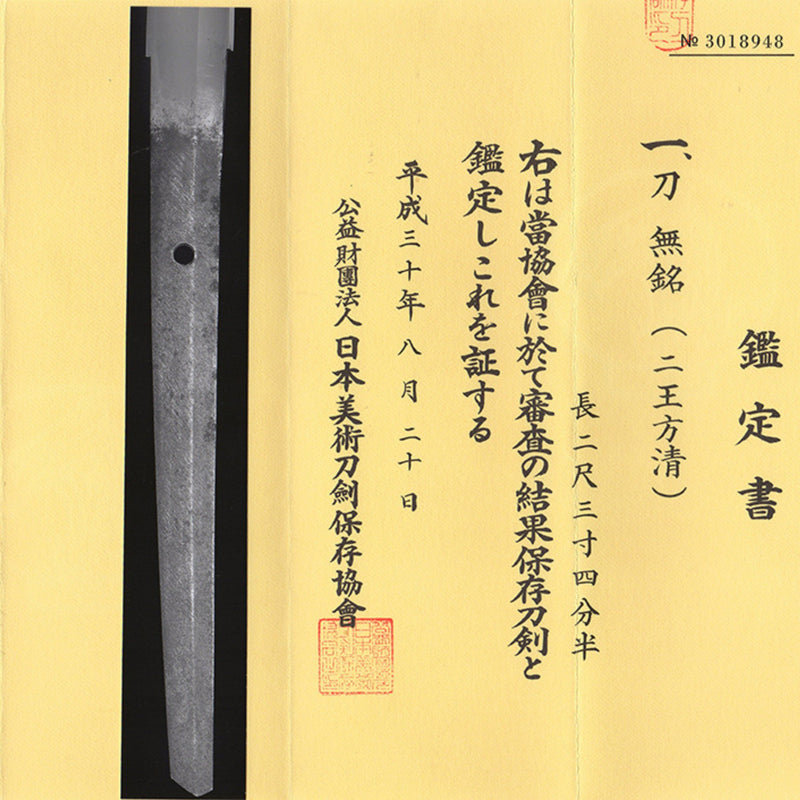 № 3018948
鑑定書
一、刀 無銘（二王方清）
長二尺三寸四分半
右は當協會に於て審査の結果保存刀剣と
鑑定しこれを証する
平成三十年八月二十日
公益財團法人 日本美術刀劍保存協會